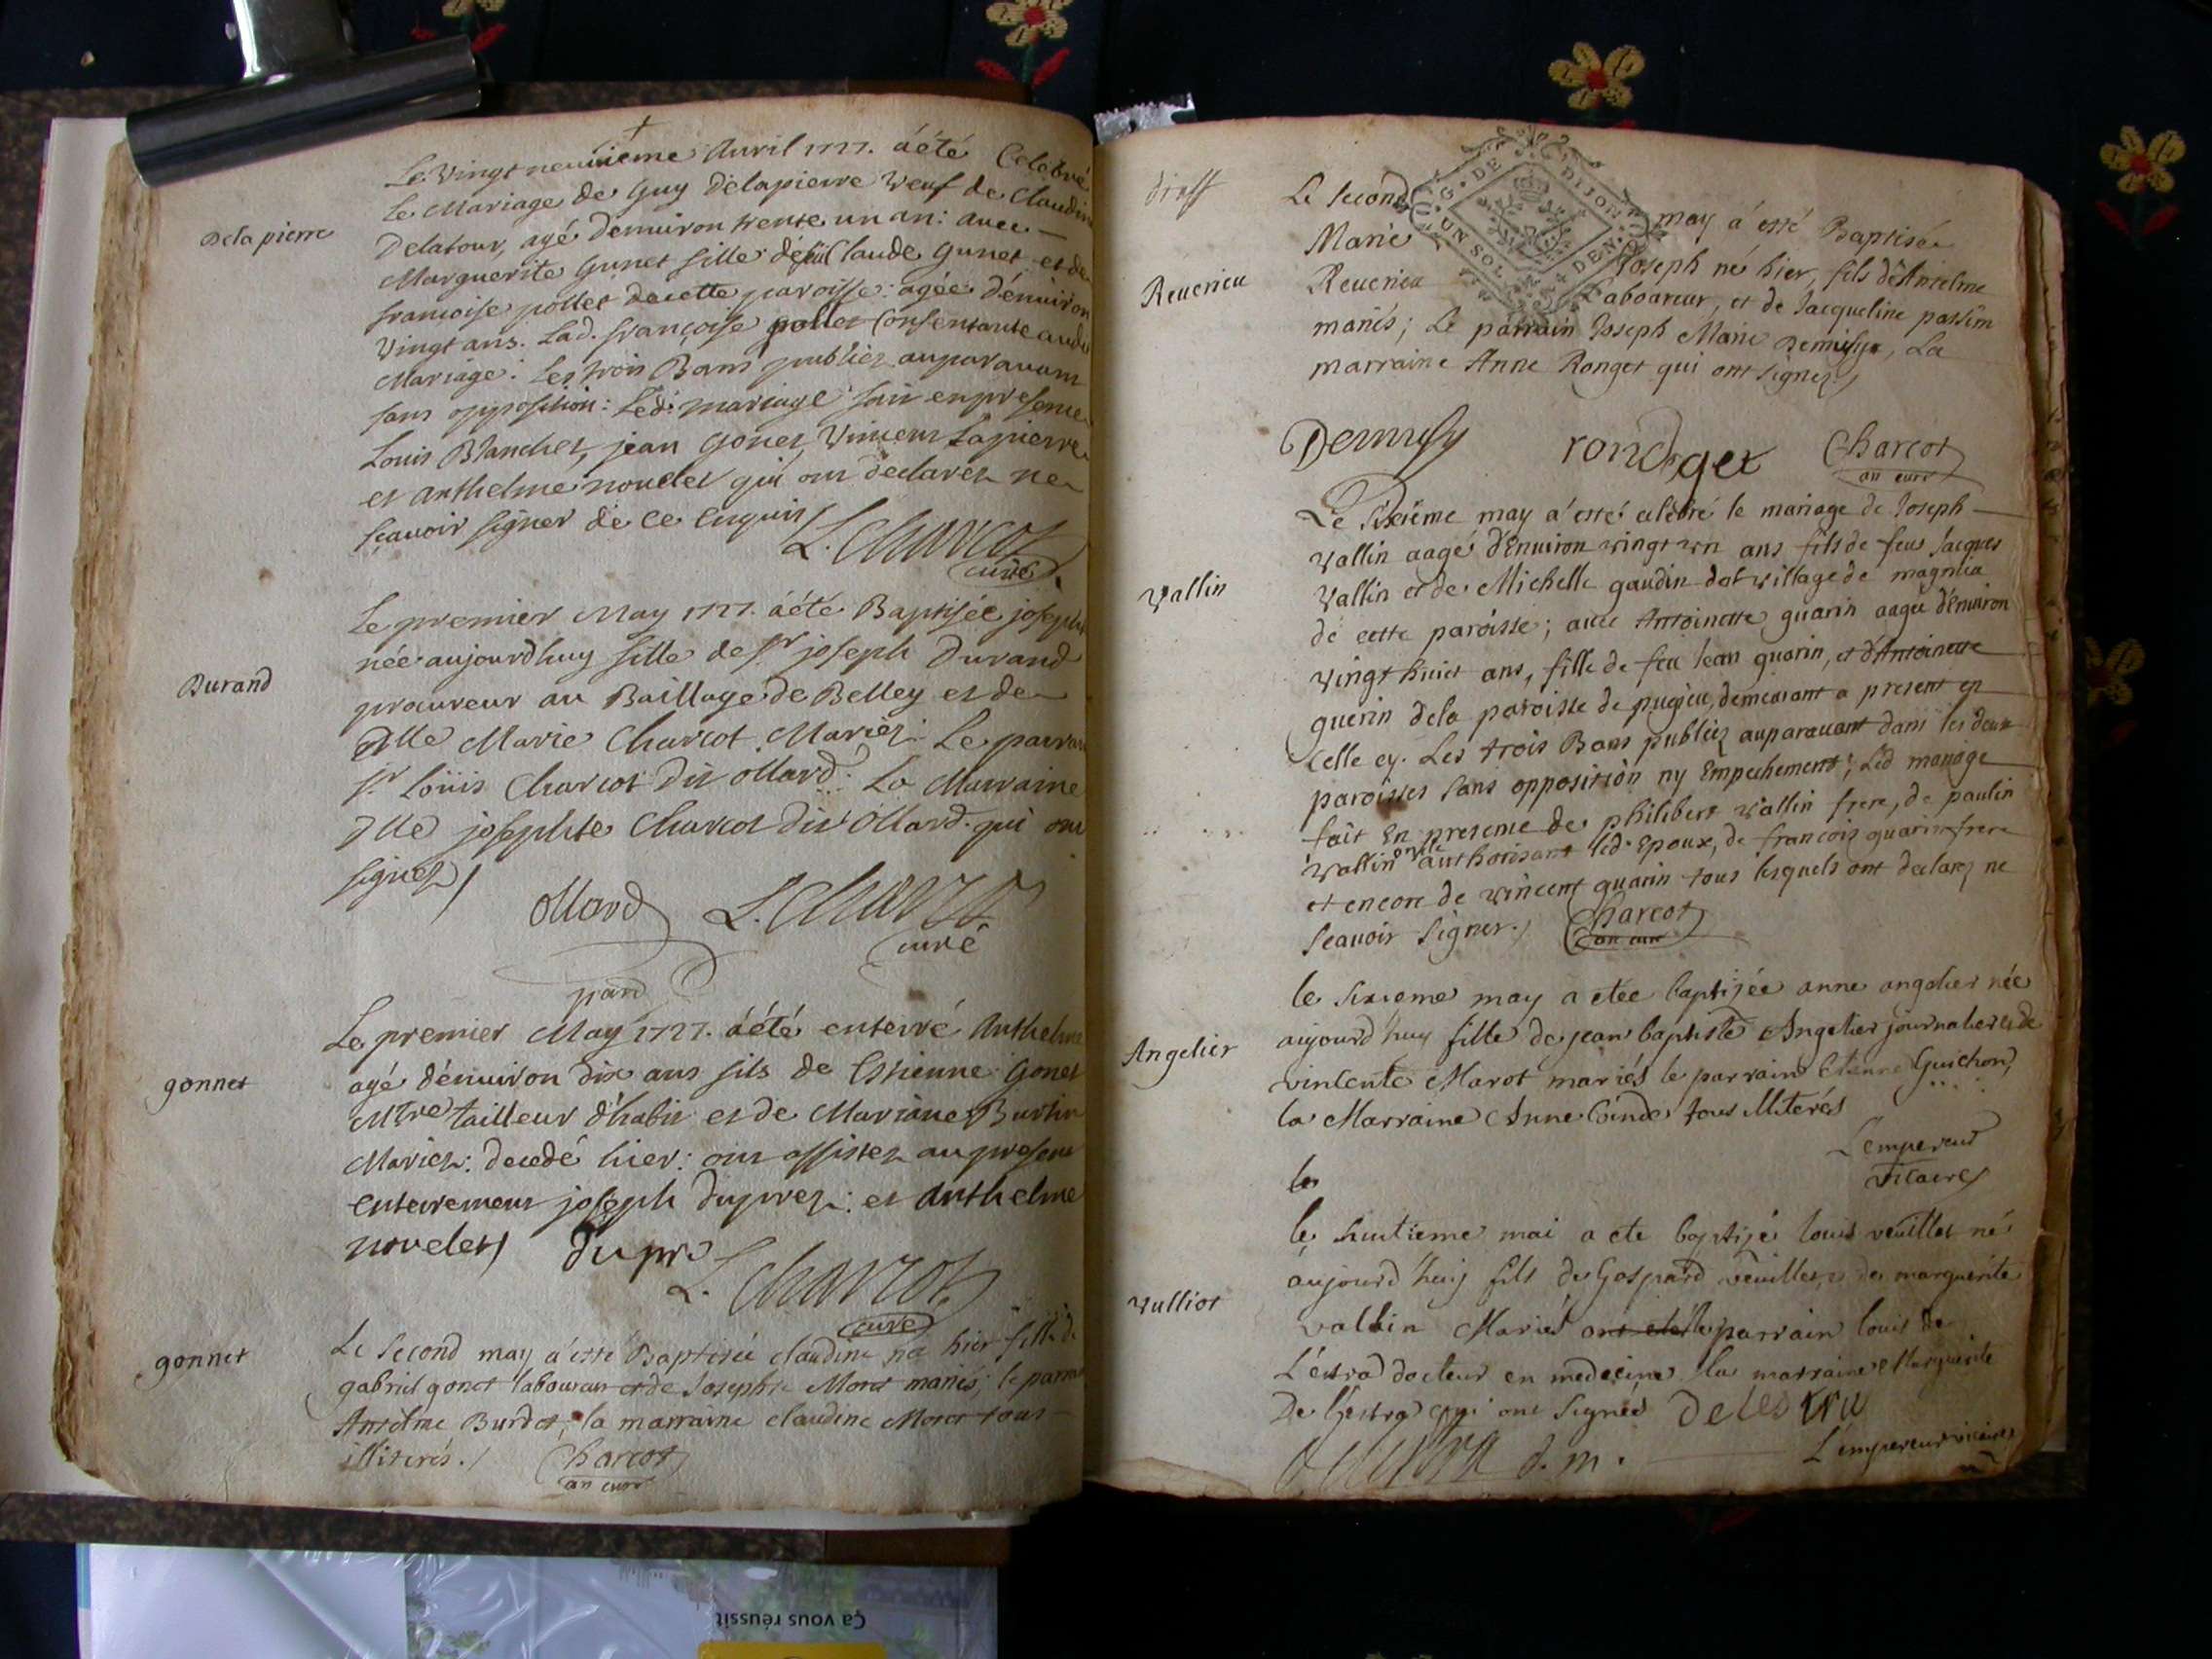 Le vingt neuvieme Avril 1727. a été Celebré
Le Mariage de Guy Delapierre Veuf de Claudine
Dela pierre
Delatour, agé denuiron trente un an: auec
Marguerite Gunet fille de feu Claude Gunet et de
francoise pollet decette paroisse: agée dénuiron
Vingt ans. Lad. françoise pollet Consentante audit
Mariage: Les trois Bans publiez auparauant
sans opposition: Led. mariage fait en presence
Louis Blanchet, jean Gonet, Vincent Lapierre
et anthelme nouelet qui ont declarez ne
sçauoir signer de ce Enquis
L. Charcot
curé
Le premier May 1727. a été Baptisée josephte
née aujourdhuy fille de sr joseph Durand
Durand
procureur au Baillage de Belley et de
dlle Marie Charcot Mariez: Le parrain
sr. Loüis Charcot dit ollard: La Marraine
dlle josephte Charcot dit ollard. qui ont
signez
ollard L. Charcot
curé
Le premier May 1727. a été enterré Anthelme
gonnet
agé dénuiron dix ans fils de Estienne Gonet
Mtre tailleur d'habit et de Mariane Burtin
Mariez: decedé hier: ont assistez au present
enterrement joseph duprez: et anthelme
nouelet dupre
L. Charcot
curé
Le Second may a esté Baptisée claudine née hier fille de
gonnet
gabriel gonet laboureur et de Josephte Moret mariés; le parrain
Antelme Burdet; la marraine claudine Moret tous
illiterés.
Charcot
an curé
Le second may a esté Baptisé
Marie Joseph né hier, fils de Antelme
Reuerieu
Reuerieu Laboureur, et de Jacqueline passin
mariés; Le parrain Joseph Marie Demusy, La
marraine Anne Ronget qui ont signez
G. DE DIJON
UN SOL DEN.
Demusy rondget Charcot
an curé
Le Sixiéme may a esté celebré le mariage de Joseph
Vallin
vallin aagé d'Enuiron vingt un ans fils de feu Jacques
Vallin et de Michelle gaudin du village de magnieu
de cette paroisse; auec Antoinette guarin aagée d'Enuiron
vingt huict ans, fille de feu Jean guarin, et d'Antoinette
guerin dela paroisse de pugieu, demeurant a present en
celle cy. Les trois Bans publiez auparauant dans les deux
paroisses sans opposition ny Empechement; Led mariage
fait En presence de philibert vallin frere, de paulin
vallin oncle authorisant led. Epoux, de francois guarin frere
et encore de vincent guarin tous lesquels ont declarez ne
sçauoir signer.
Charcot
an curé
le sixieme may a etée baptisée anne angelier née
Angelier
aujourd'huy fille de jean baptiste Angelier journalier et de
vincente Marot mariés le parrain Etienne Guichon
la Marraine Anne Coinde tous illiterés
L'empereur
vicaire
le
le huitieme mai a ete baptisé louis veuillet né
aujourd'huy fils de Gaspard veuillet et de marguerite
vulliot
vallin Mariés ont eté le parrain louis de
L'estra docteur en medecine la marraine Marguerite
De Lestra qui ont signés delestra
delestra d. m. L'empereur vicaire
Ça vous réussit